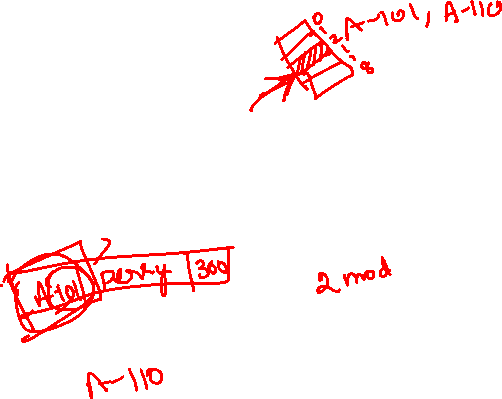 0
2 A-101, A-110
8
A-101 perry 300
2 mod
A-110